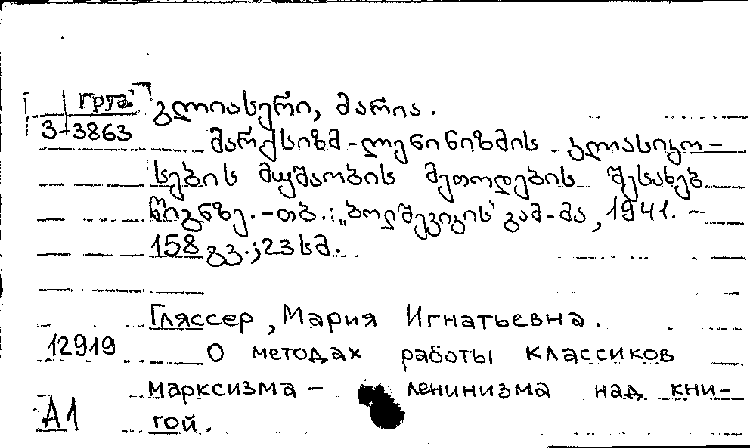 груз.
გლიასერი, მარია.
3-3863
მარქსიზმ-ლენინიზმის კლასიკო-
სების მუშაობის მეთოდების შესახებ
წიგნზე.-თბ.: „ბოლშევიკის" გამ-მა, 1941.-
158 გვ.; 23 სმ.
Гляссер, Мария Игнатьевна.
12919
О методах работы классиков
марксизма- ленинизма над кни-
А1
гой.